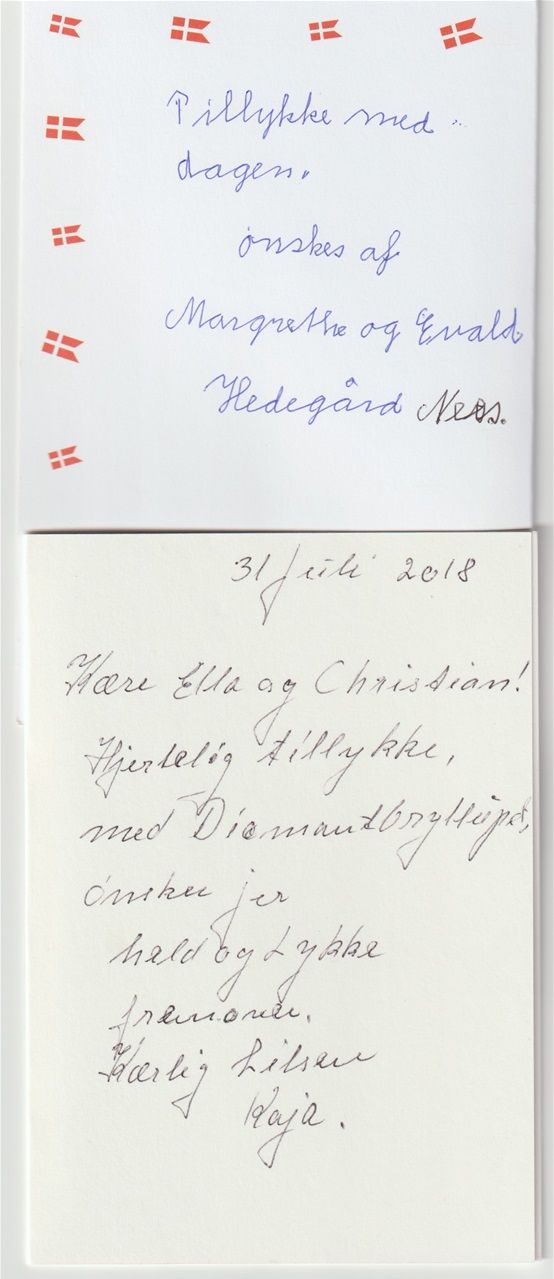 Tillykke med
dagen.
ønskes af
Margrethe og Evald
Hedegård Nees.
31 juli 2018
Kære Ella og Christian!
Hjertelig tillykke,
med Diamantbryllupet,
ønsker jer
held og Lykke
fremover.
Kærlig hilsen
Kaja.